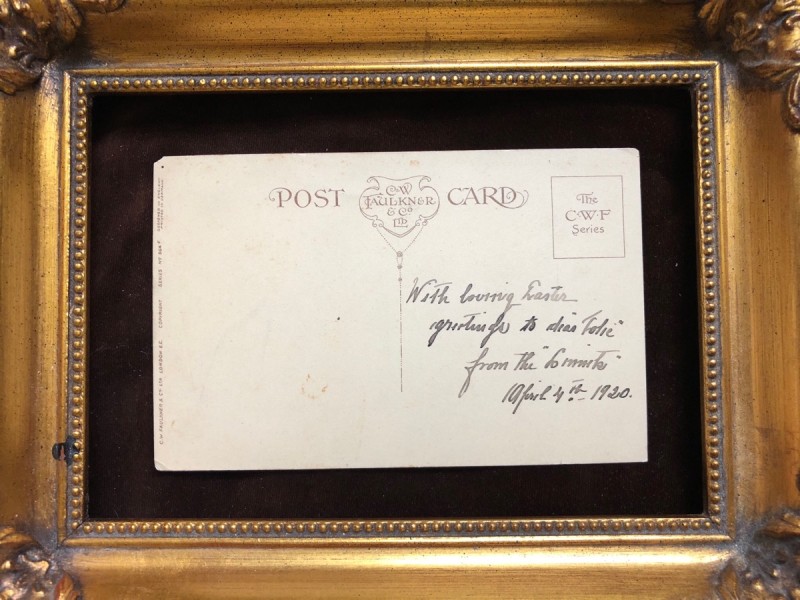 POST CARD
C.W
FAULKNER
& Co
Ltd
The
C.W.F
Series
With loving Easter
greetings to dear
from the
April 4th 1920.
C.W. FAULKNER & CO LTD. LONDON E.C. COPYRIGHT SERIES No